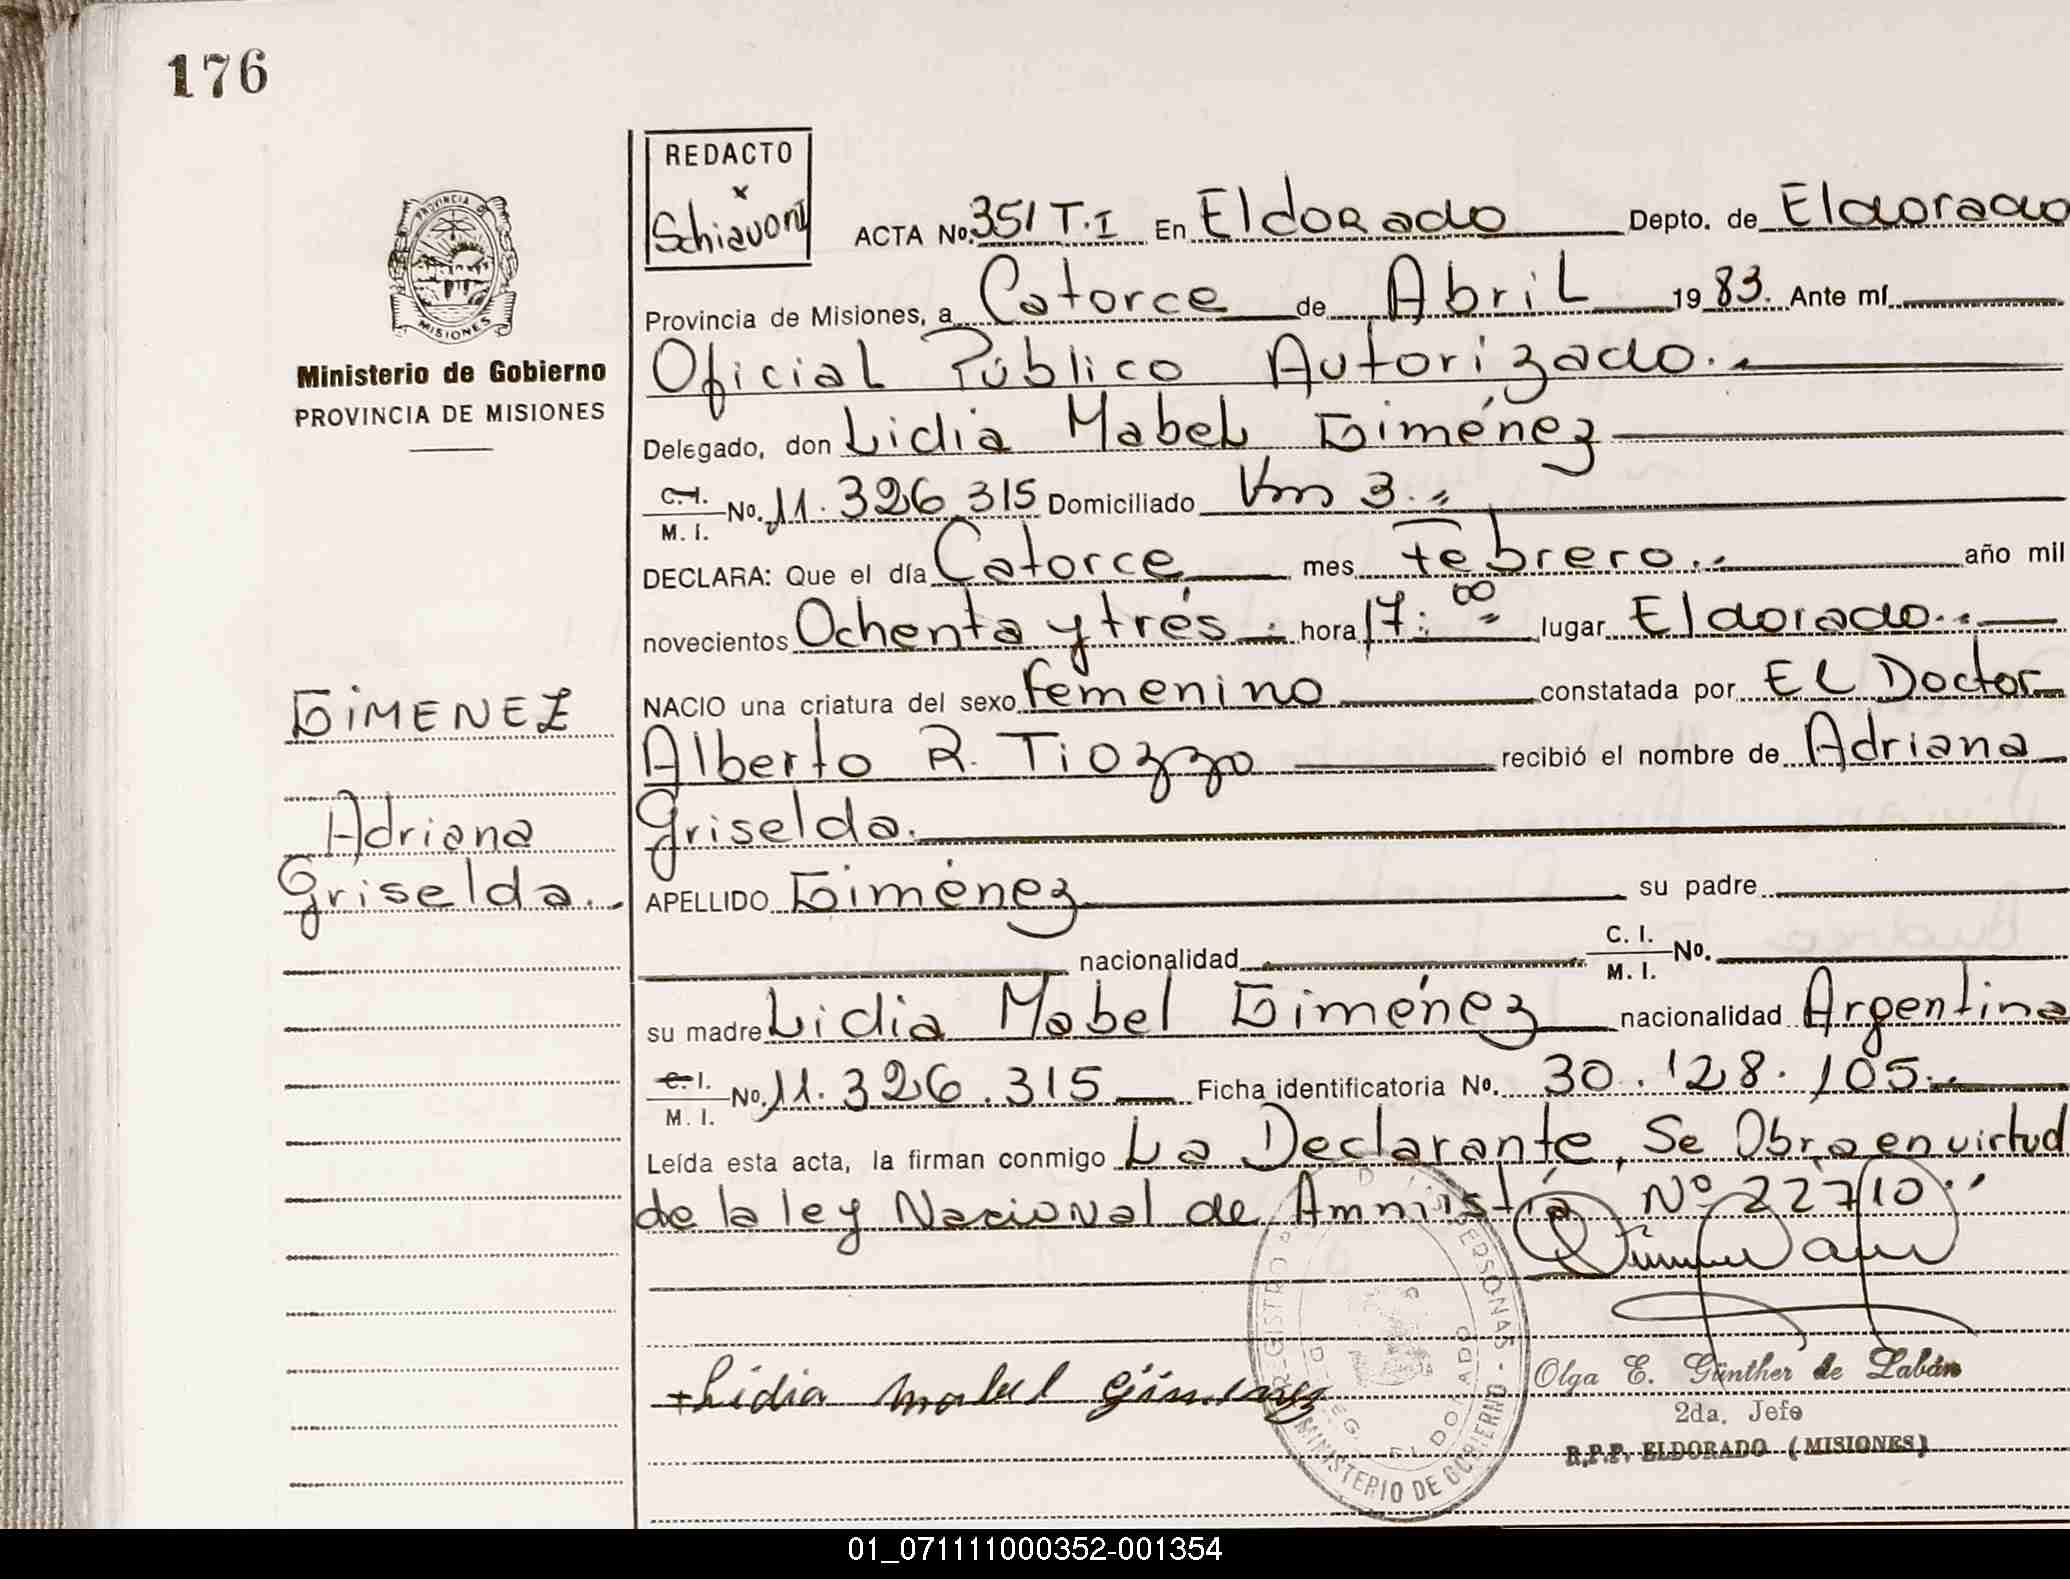 176
REDACTO
x
Schiavoni
ACTA No. 351 T.I En Eldorado Depto. de Eldorado
Provincia de Misiones, a Catorce de Abril 1983. Ante mí
Oficial Público Autorizado.
Delegado, don Lidia Mabel Giménez
C.I. M.I. No. 11.326.315 Domiciliado Km 3.
DECLARA: Que el día Catorce mes Febrero.. año mil
novecientos Ochenta y trés hora 17:00 lugar Eldorado..
NACIO una criatura del sexo femenino constatada por El Doctor
Alberto R. Tiozzo recibió el nombre de Adriana
Griselda.
APELLIDO Giménez su padre
nacionalidad C. I. M. I. No.
su madre Lidia Mabel Giménez nacionalidad Argentina
C.I. M.I. No. 11.326.315 Ficha identificatoria No. 30.128.105.
Leída esta acta, la firman conmigo La Declarante, Se Obra en virtud
de la ley Nacional de Amnistía Nº 22710..
Lidia Mabel Giménez
Olga E. Günther de Labán
2da. Jefe
R.P.P. ELDORADO (MISIONES)
PROVINCIA D
MISIONES
Ministerio de Gobierno
PROVINCIA DE MISIONES
GIMENEZ
Adriana
Griselda.
MINISTERIO DE GOBIERNO
ELDORADO
01_071111000352-001354